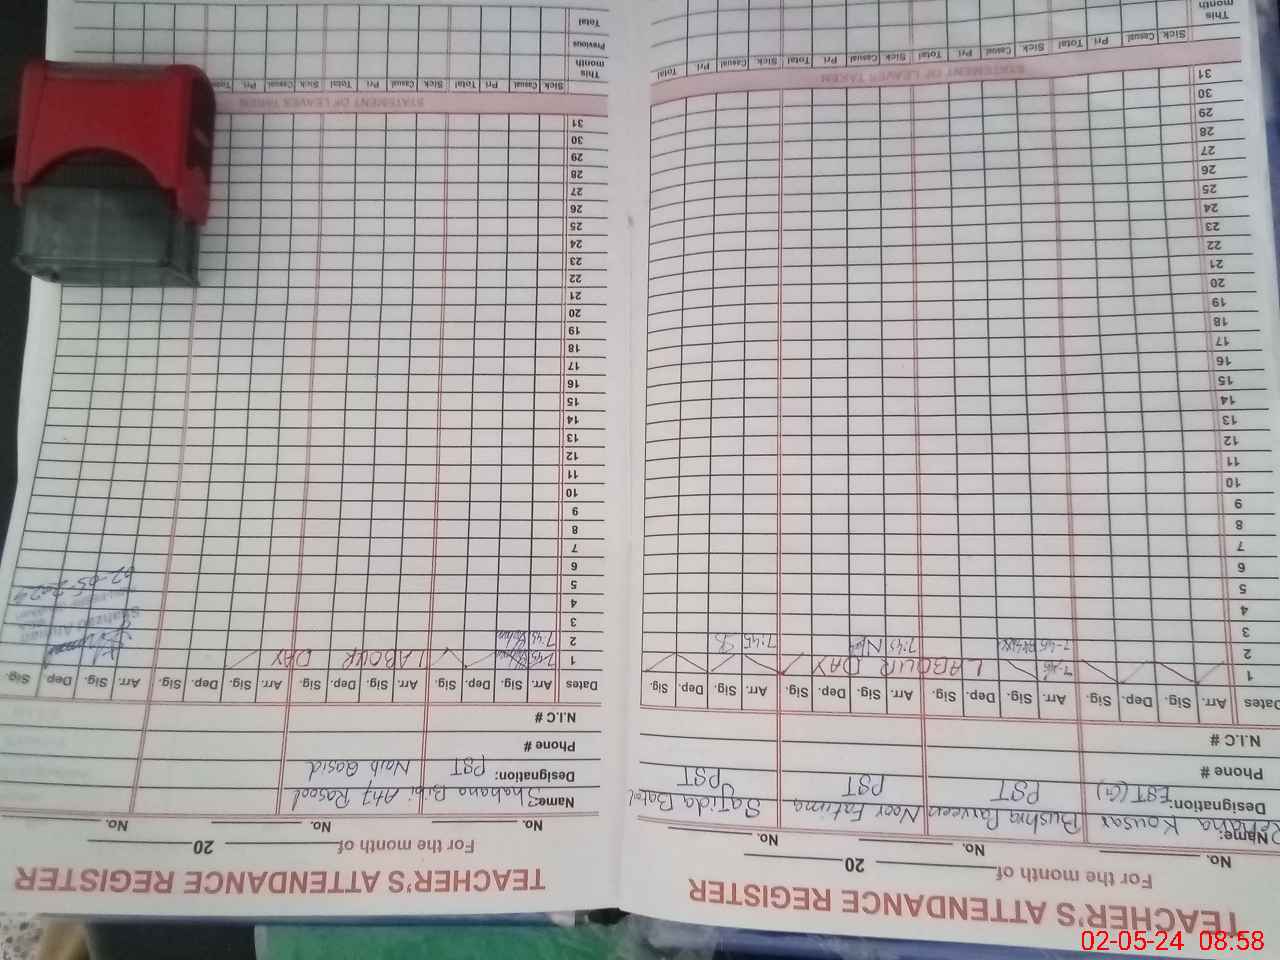 TEACHER'S ATTENDANCE REGISTER
For the month of 20
No. No. No. No.
Name: Rehana Kousar Bushra Parveen Noor Fatima Sajida Batol
Designation: EST(G) PST PST PST
Phone #
N.I.C #
Dates Arr. Sig. Dep. Sig. Arr. Sig. Dep. Sig. Arr. Sig. Dep. Sig. Arr. Sig. Dep. Sig.
1 7:45 LABOUR DAY
2 7:45 7:45 7:45
3
4
5
6
7
8
9
10
11
12
13
14
15
16
17
18
19
20
21
22
23
24
25
26
27
28
29
30
31
STATEMENT OF LEAVES TAKEN
Sick Casual Pri Total Sick Casual Pri Total Sick Casual Pri Total Sick Casual Pri Total
This month
TEACHER'S ATTENDANCE REGISTER
For the month of 20
No. No. No.
Name: Shahana Bibi Atif Rasool
Designation: PST Naib Qasid
Phone #
N.I.C #
Dates Arr. Sig. Dep. Sig. Arr. Sig. Dep. Sig. Arr. Sig. Dep. Sig. Arr. Sig. Dep. Sig.
1 7:45 LABOUR DAY
2 7:45
3
4
5
6
7
8
9
10
11
12
13
14
15
16
17
18
19
20
21
22
23
24
25
26
27
28
29
30
31
02-05-2024
STATEMENT OF LEAVES TAKEN
Sick Casual Pri Total Sick Casual Pri Total Sick Casual Pri Total
This month
Previous
Total
02-05-24 08:58